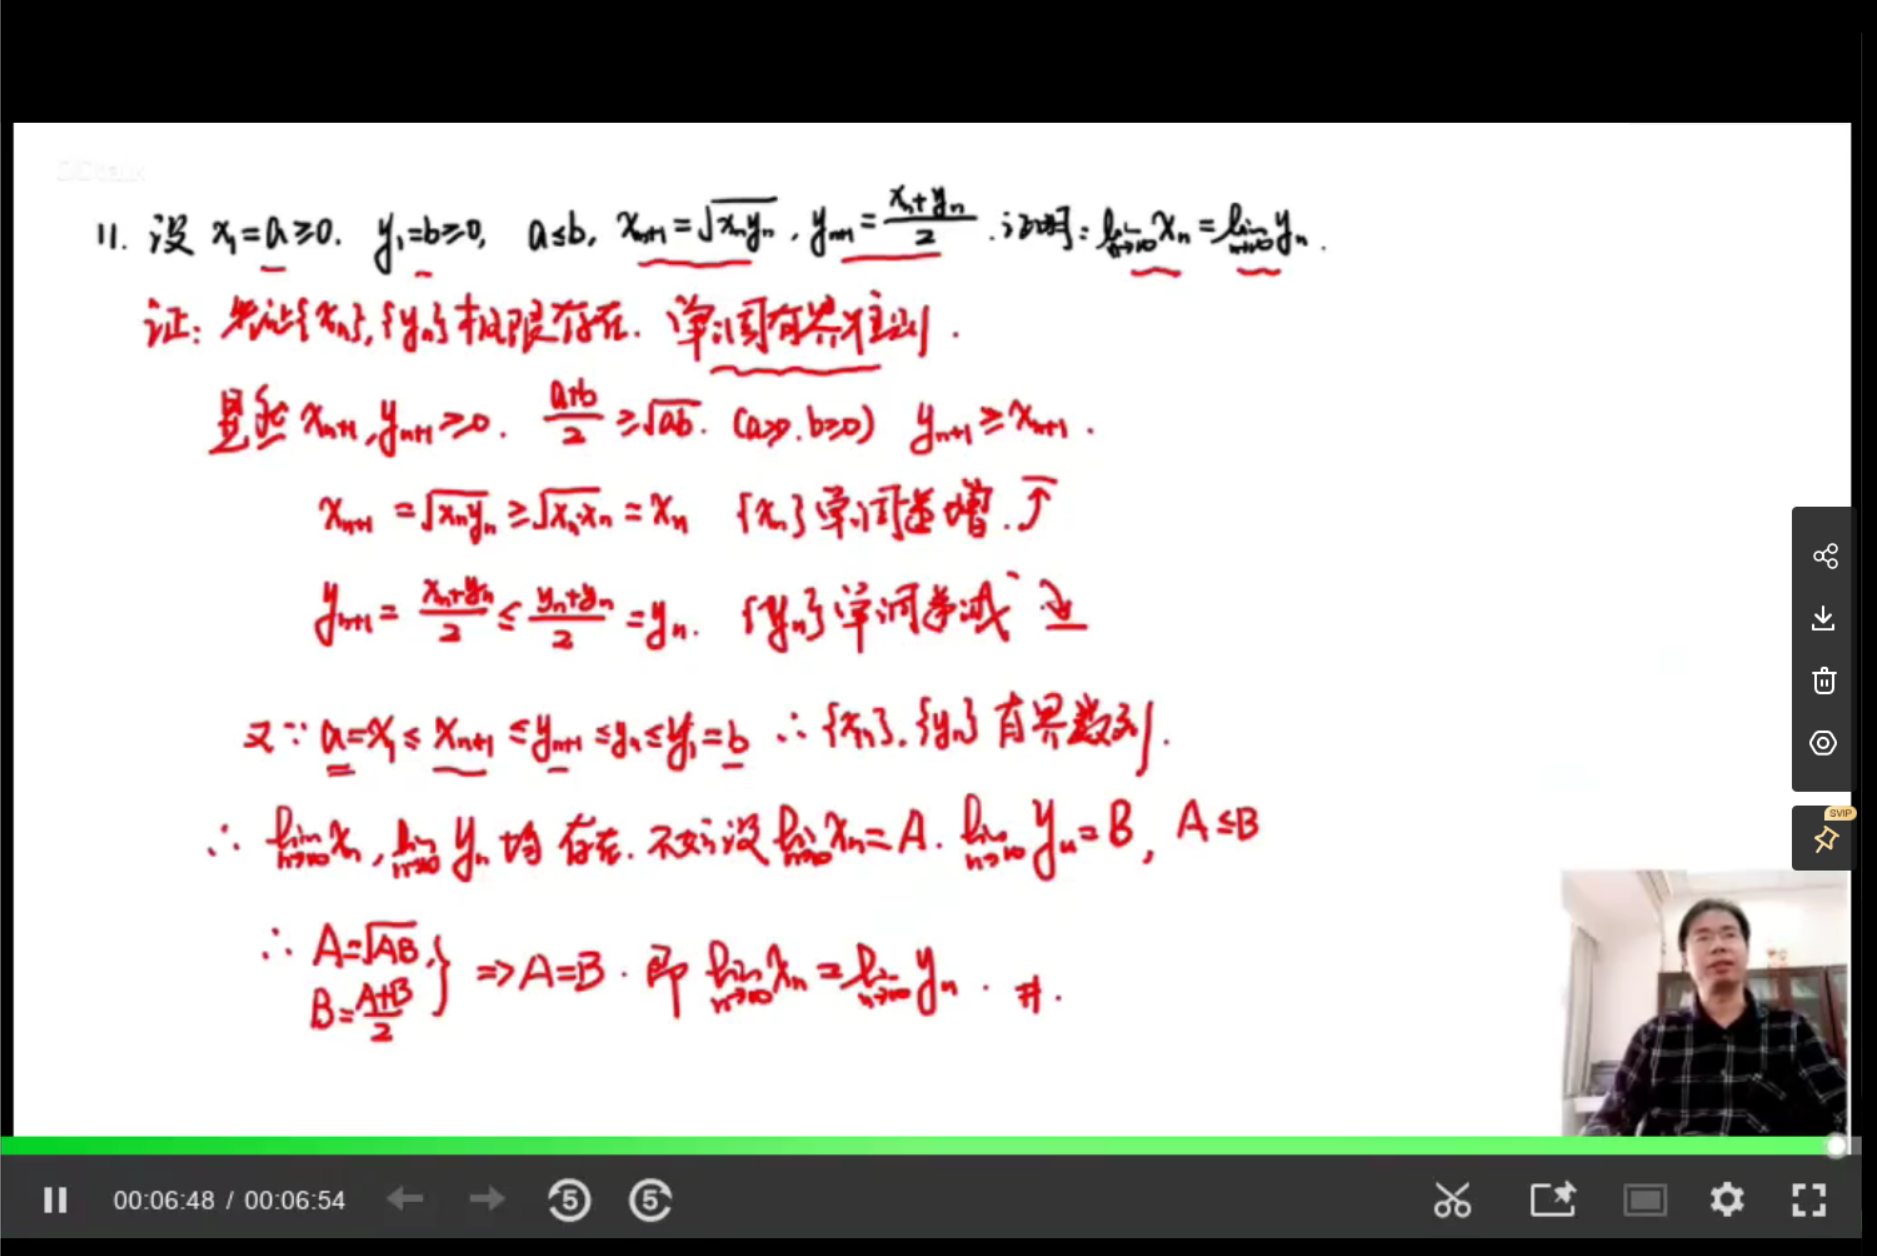 11. 设 x₁=a≥0. y₁=b≥0, a≤b, xₙ₊₁=√(xₙyₙ), yₙ₊₁=(xₙ+yₙ)/2. 证明: lim_{n→∞} xₙ = lim_{n→∞} yₙ.
证: 先证{xₙ},{yₙ}极限存在. 单调有界准则.
显然 xₙ₊₁,yₙ₊₁≥0. (a+b)/2 ≥ √ab. (a≥0. b≥0) yₙ₊₁≥xₙ₊₁.
xₙ₊₁ = √(xₙyₙ) ≥ √(xₙ·xₙ) = xₙ {xₙ}单调递增.↑
yₙ₊₁ = (xₙ+yₙ)/2 ≤ (yₙ+yₙ)/2 = yₙ. {yₙ}单调递减
又∵ a=x₁≤xₙ₊₁≤yₙ₊₁≤yₙ≤y₁=b ∴{xₙ}.{yₙ}有界数列.
∴ lim_{n→∞} xₙ, lim_{n→∞} yₙ 均存在. 不妨设 lim_{n→∞} xₙ=A. lim_{n→∞} yₙ=B, A≤B
∴ A=√AB, B=(A+B)/2 } ⇒A=B. 即 lim_{n→∞} xₙ = lim_{n→∞} yₙ. #.
SVIP
00:06:48 / 00:06:54
5 5